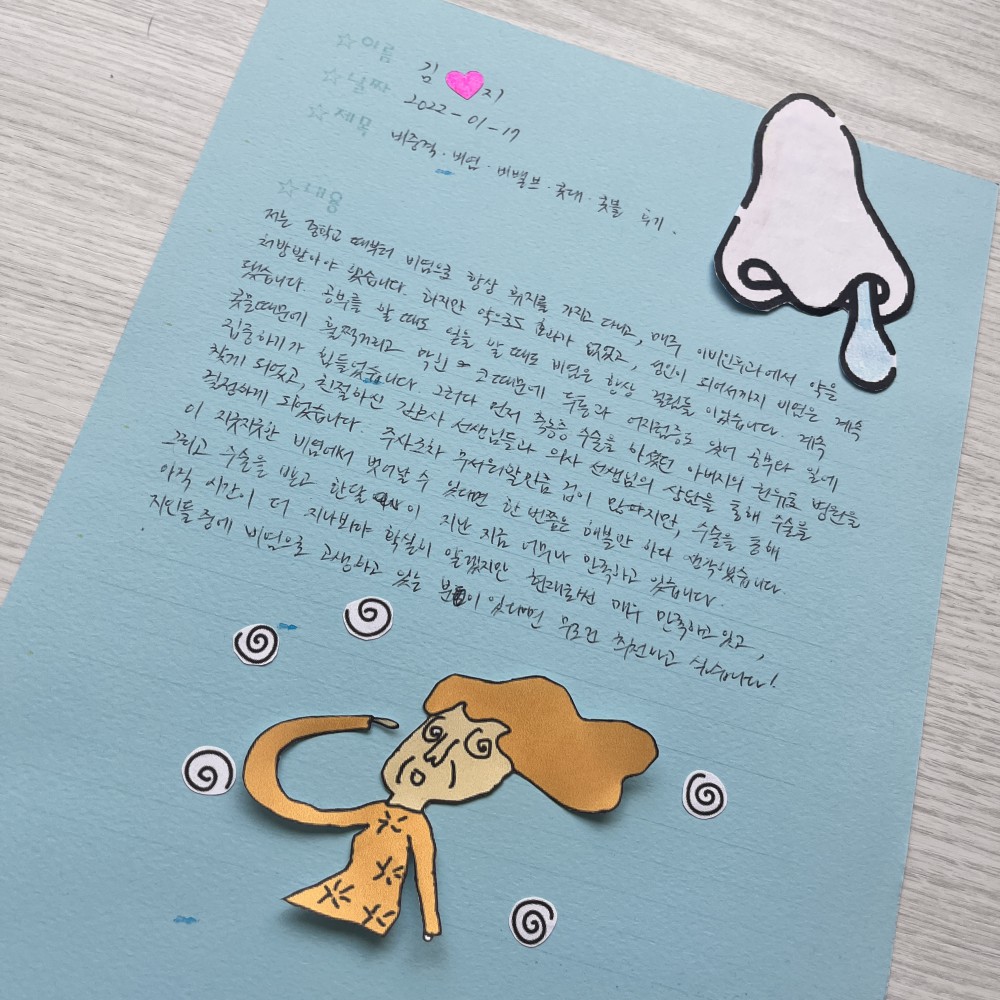 ☆ 이름 김 지
☆ 날짜 2022-01-17
☆ 제목 비중격·비염·비밸브·콧대·콧볼 후기.
☆ 내용
저는 중학교 때부터 비염으로 항상 휴지를 가지고 다니고, 매주 이비인후과에서 약을
처방받아야 했습니다. 하지만 약으로도 효과가 없었고, 성인이 되어서까지 비염은 계속
됐습니다. 공부를 할 때도 일을 할 때도 비염은 항상 걸림돌이었습니다. 계속
콧물때문에 훌쩍거리고 막힌 코때문에 두통과 어지럼증도 있어 공부와 일에
집중하기가 힘들었습니다. 그러다 먼저 축농증 수술을 하셨던 아버지의 권유로 병원을
찾게 되었고, 친절하신 간호사 선생님들과 의사 선생님의 상담을 통해 수술을
결정하게 되었습니다. 주사조차 무서워할만큼 겁이 많았지만, 수술을 통해
이 지긋지긋한 비염에서 벗어날 수 있다면 한 번쯤은 해볼만 하다 생각했습니다.
그리고 수술을 받고 한달 이 지난 지금 너무나 만족하고 있습니다.
아직 시간이 더 지나봐야 확실히 알겠지만 현재로선 매우 만족하고 있고,
지인들 중에 비염으로 고생하고 있는 분이 있다면 무조건 추천하고 싶습니다!